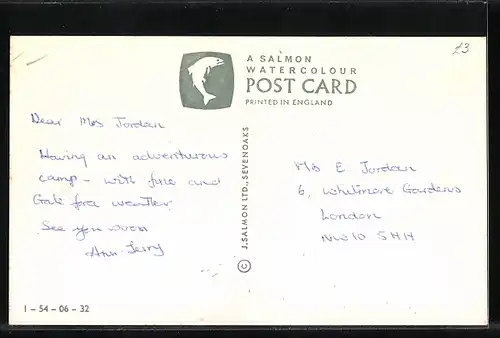 A SALMON
WATERCOLOUR
POST CARD
PRINTED IN ENGLAND
£3
Dear Mrs Jordan
Having an adventurous
camp - with fine and
Gale force weather.
See you soon
Ann
J. SALMON LTD., SEVENOAKS ©
Mrs E Jordan
6, Whitmore Gardens
London
NW10 5HH
1 - 54 - 06 - 32